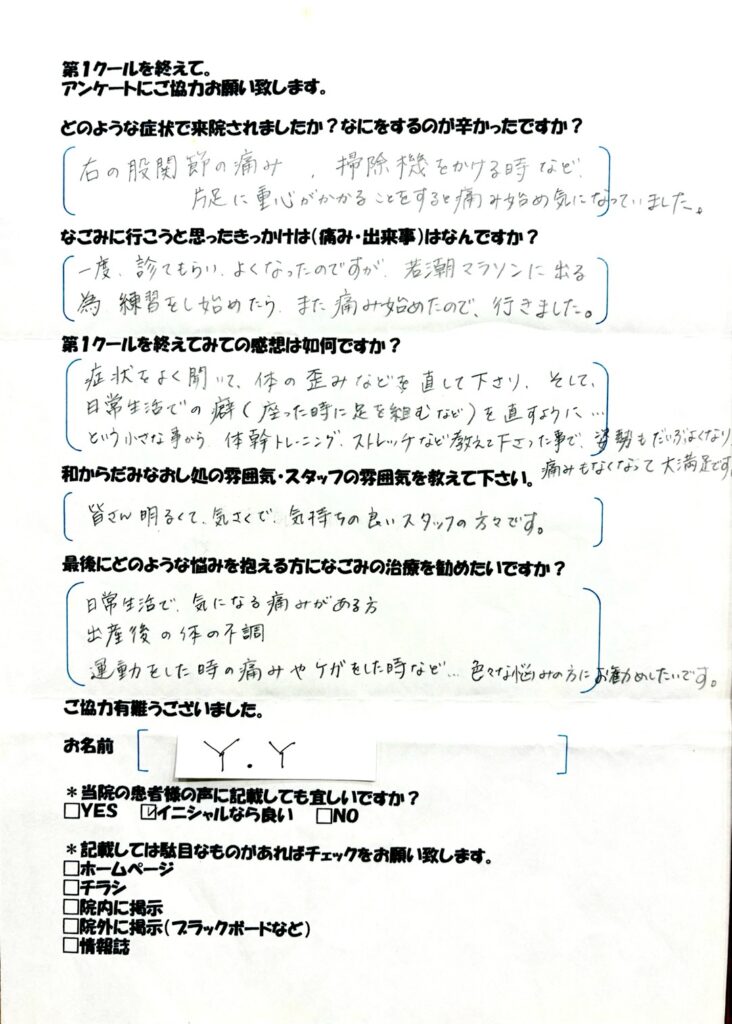 第1クールを終えて。
アンケートにご協力お願い致します。
どのような症状で来院されましたか？なにをするのが辛かったですか？
右の股関節の痛み、掃除機をかける時など、
片足に重心がかかることをすると痛み始め気になっていました。
なごみに行こうと思ったきっかけは(痛み・出来事)はなんですか？
一度、診てもらい、よくなったのですが、若潮マラソンに出る
為、練習をし始めたら、また痛み始めたので、行きました。
第1クールを終えてみての感想は如何ですか？
症状をよく聞いて、体の歪みなどを直して下さり、そして、
日常生活での癖(座った時に足を組むなど)を直すように…
という小さな事から、体幹トレーニング、ストレッチなど教えて下さった事で、姿勢もだいぶよくなり
痛みもなくなって大満足です
和からだみなおし処の雰囲気・スタッフの雰囲気を教えて下さい。
皆さん明るくて、気さくで、気持ちの良いスタッフの方々です。
最後にどのような悩みを抱える方になごみの治療を勧めたいですか？
日常生活で、気になる痛みがある方
出産後の体の不調
運動をした時の痛みやケガをした時など… 色々な悩みの方にお勧めしたいです。
ご協力有難うございました。
お名前 Y.Y
＊当院の患者様の声に記載しても宜しいですか？
□YES ☑イニシャルなら良い □NO
＊記載しては駄目なものがあればチェックをお願い致します。
□ホームページ
□チラシ
□院内に掲示
□院外に掲示(ブラックボードなど)
□情報誌